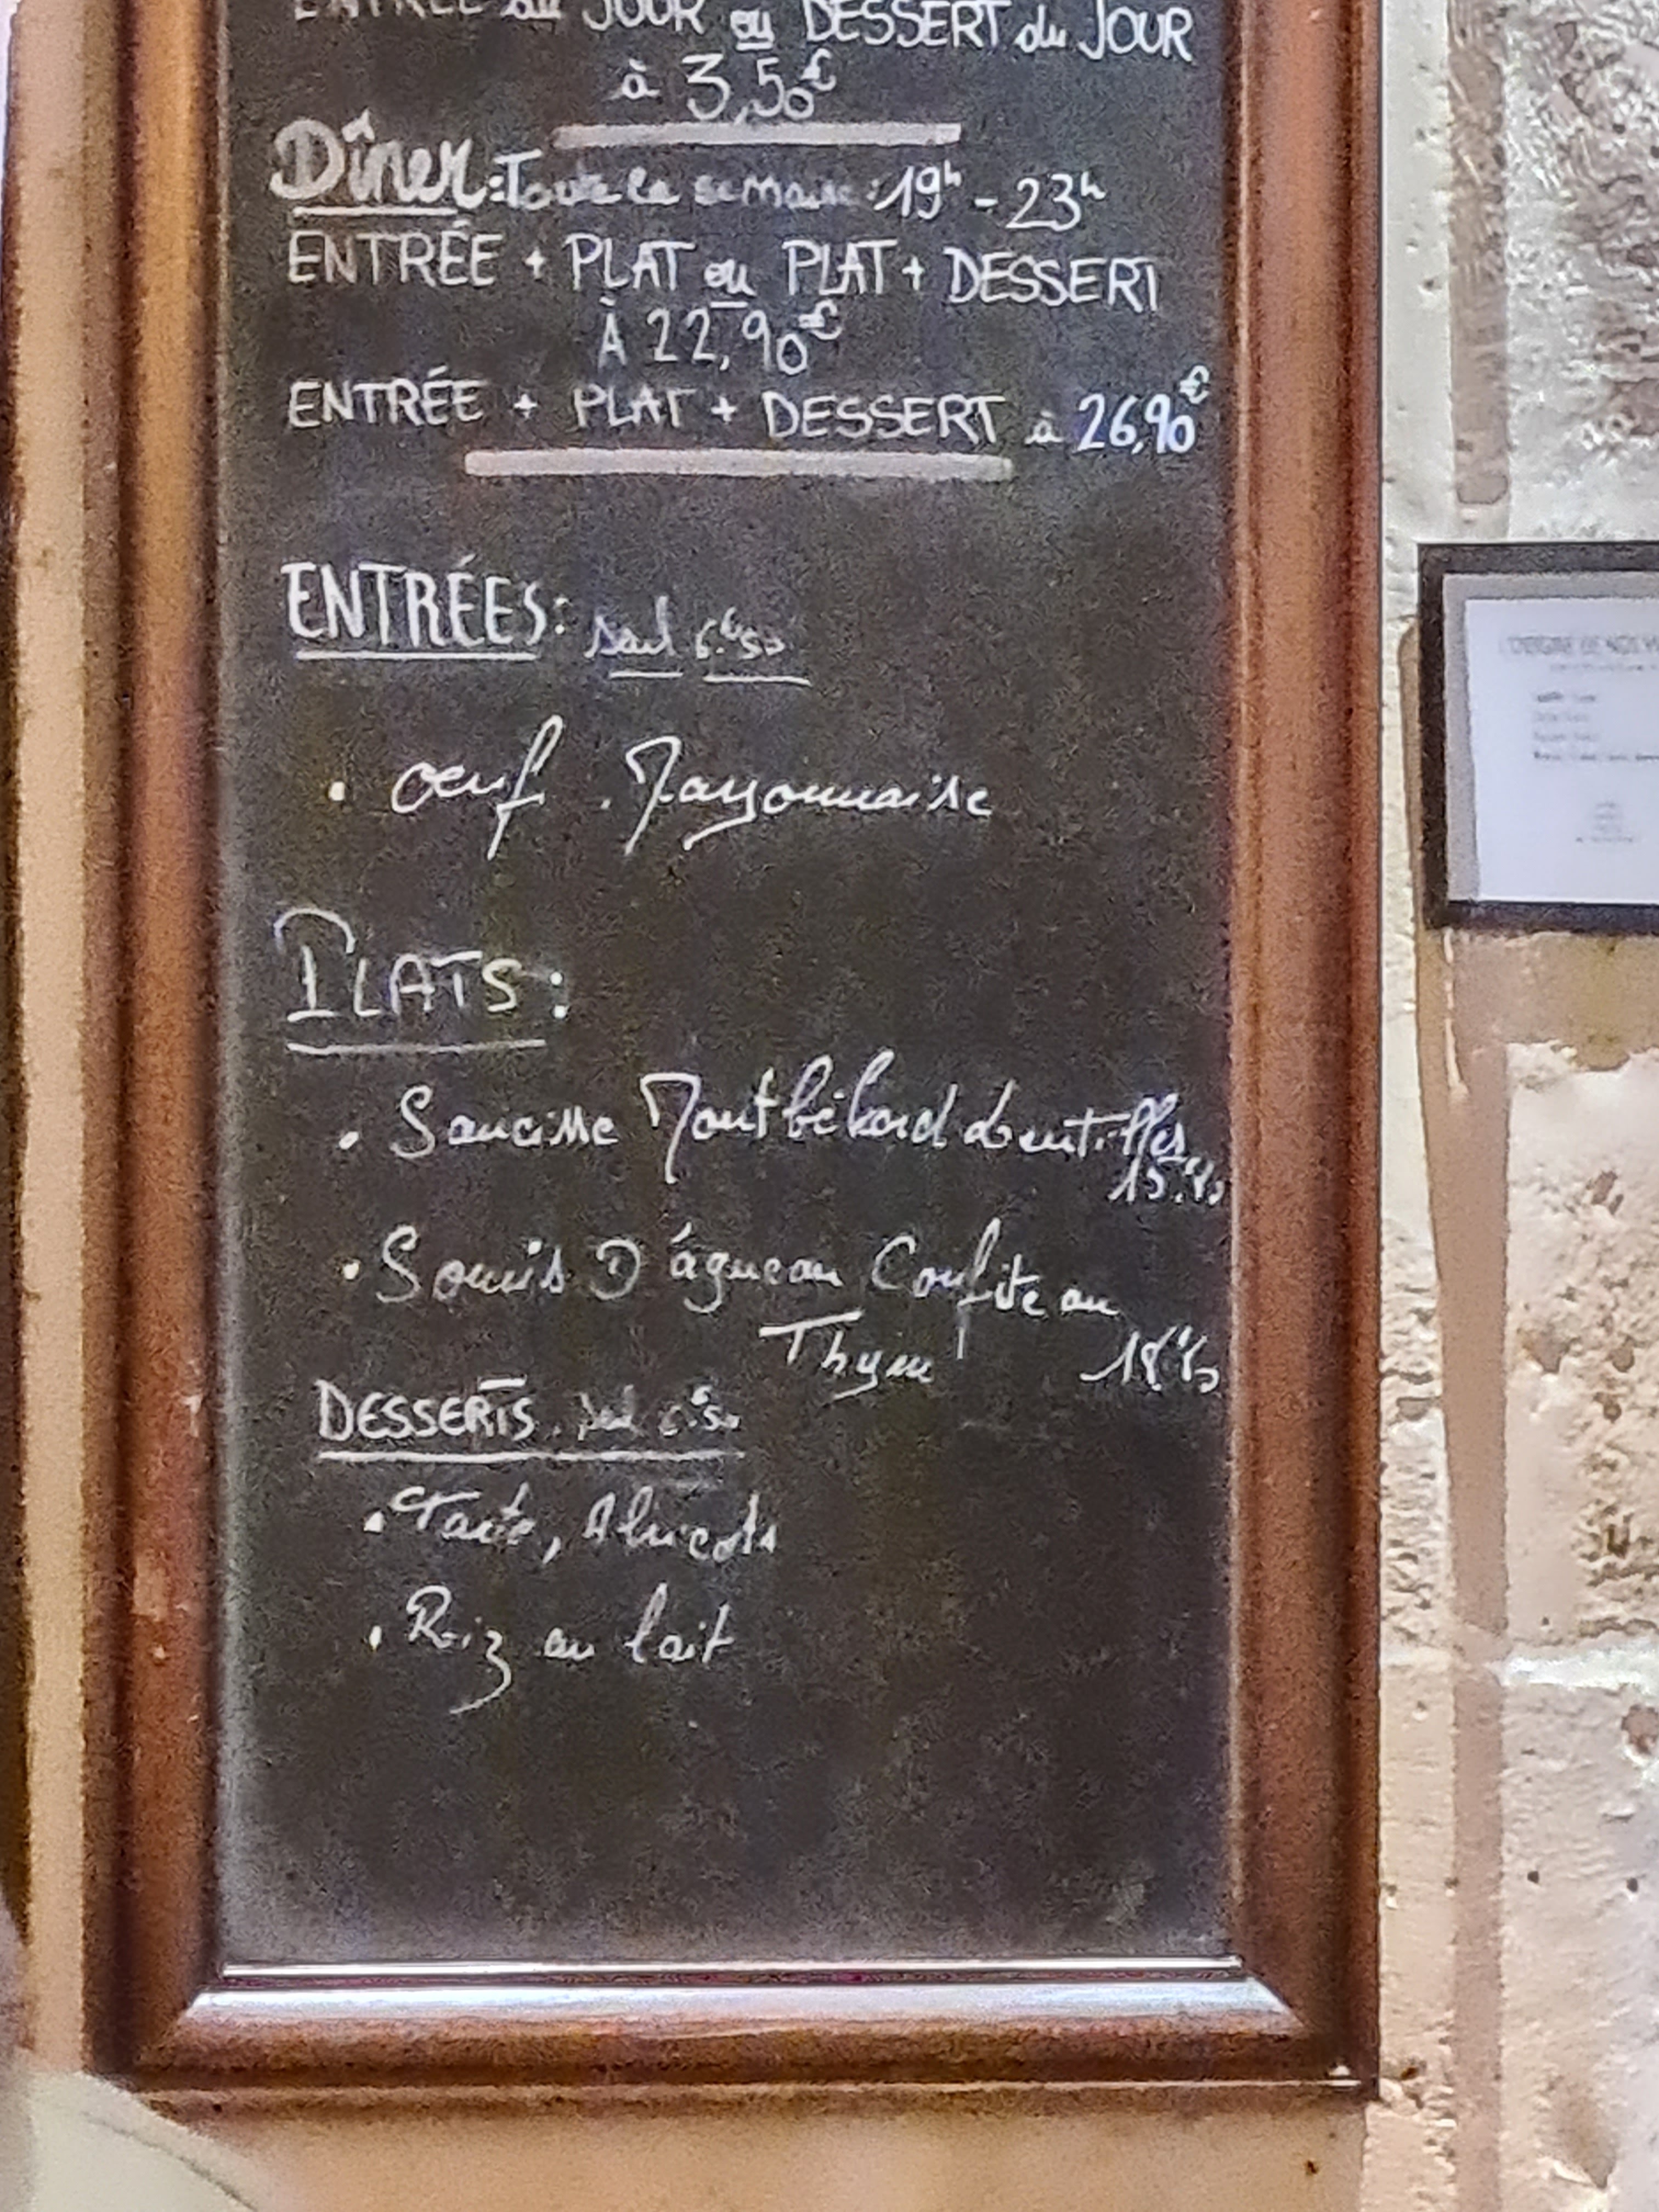 ENTRÉE du JOUR ou DESSERT du JOUR
à 3,50€
Dîner: Toute la semaine: 19h - 23h
ENTRÉE + PLAT ou PLAT + DESSERT
À 22,90€
ENTRÉE + PLAT + DESSERT à 26,90€
ENTRÉES: seul 6€50
• œuf . Mayonnaise
PLATS:
• Saucisse Montbéliard Lentilles
• Souris D'agneau Confite au
Thym
DESSERTS. seul 6€50
• Tarte, Abricots
• Riz au lait
L'ORIGINE DE NOS